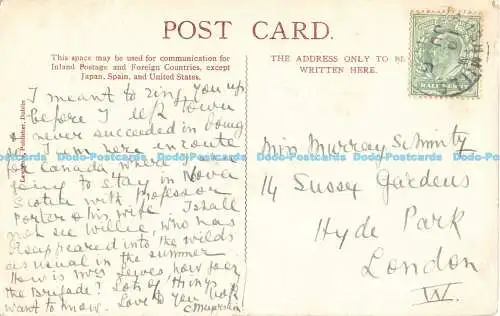 POST CARD.
This space may be used for communication for
Inland Postage and Foreign Countries, except
Japan, Spain, and United States.
THE ADDRESS ONLY TO BE
WRITTEN HERE.
Publisher, Dublin
HALFPENNY
I meant to ring you up
before I left town
& never succeeded in doing
so I am here en route
for Canada where I am
going to stay in Nova
Scotia with Professor
Porter & his wife. I shall
not see Willie, who has
disappeared into the wilds
as usual in the summer
How is Mrs
the Brigade? Lots of things
want to know. Love to you both
Miss Murray
14 Sussex Gardens
Hyde Park
London
W.
Postcards Ireland